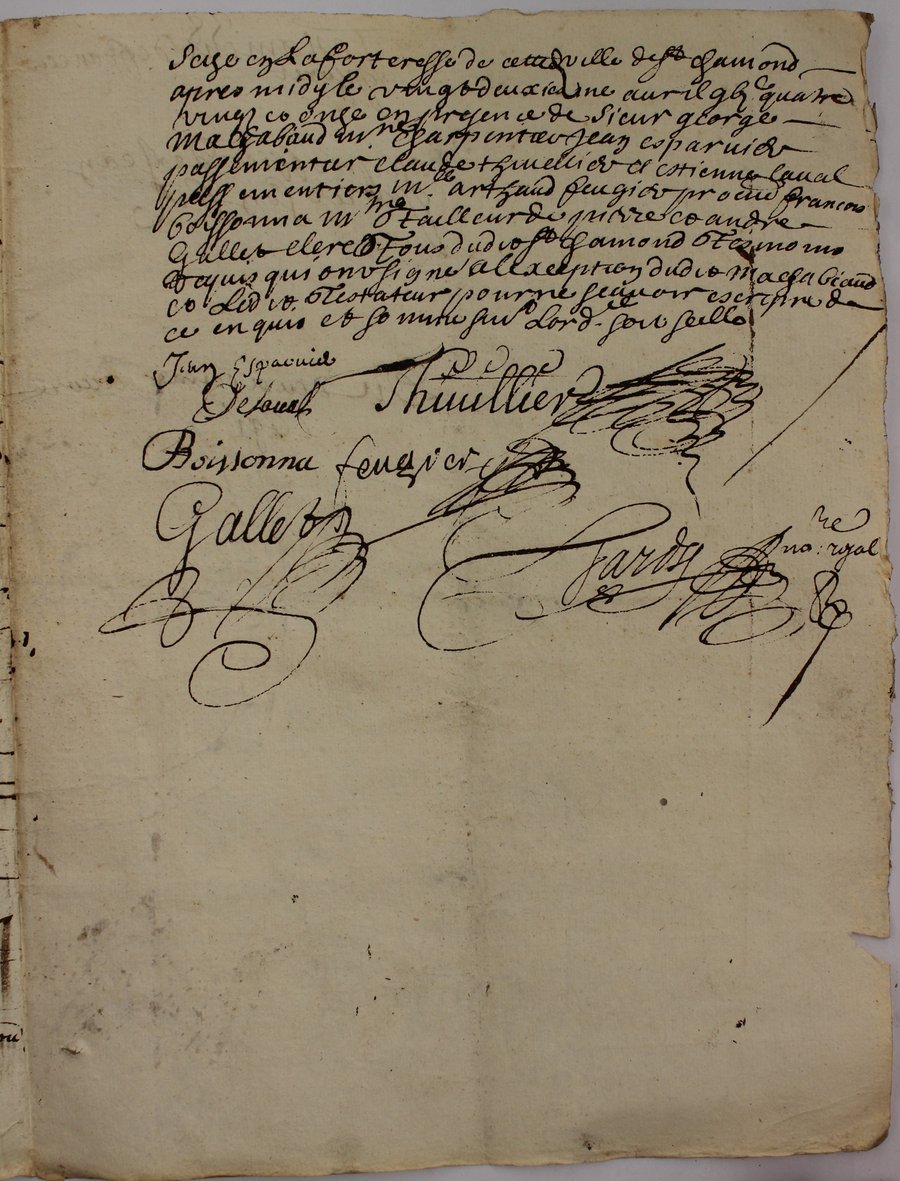 size en La forteresse de cette ville de st chamond
apres midy le vingt deuxieme avril gbc quatre
vingt et onze en presence de Sieur george
Machabaud mre charpentier Jean esparvier
passementier claude thuellier et estienne Laval
passementiers mre arthaud feugier procur francois
boissonna mtre tailleur de pierre et andre
Gallet clerc tous dudit st chamond tesmoins
requis qui ont signe a l'exception dudit machabaud
et Ledit testateur pour ne scavoir escrire de
ce enquis et somme suivt Lord.ce soit seelle
Jean Esparvier
De Laval Thuillier
Boissonna feugier
Gallet
hardy no:re rojal